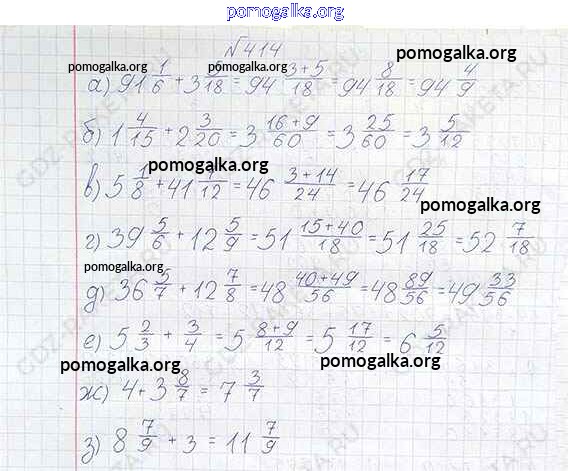 pomogalka.org
№414
pomogalka.org
pomogalka.org pomogalka.org
а) 91 1/6 + 3 5/18 = 94 (3+5)/18 = 94 8/18 = 94 4/9
pomogalka.org
б) 1 4/15 + 2 3/20 = 3 (16+9)/60 = 3 25/60 = 3 5/12
pomogalka.org
в) 5 1/8 + 41 /12 = 46 (3+14)/24 = 46 17/24
pomogalka.org
г) 39 5/6 + 12 5/9 = 51 (15+40)/18 = 51 25/18 = 52 7/18
pomogalka.org
д) 36 5/7 + 12 7/8 = 48 (40+49)/56 = 48 89/56 = 49 33/56
е) 5 2/3 + 3/4 = 5 (8+9)/12 = 5 17/12 = 6 5/12
pomogalka.org pomogalka.org
ж) 4 + 3 8/7 = 7 3/7
з) 8 7/9 + 3 = 11 7/9
pomogalka.org
GDZ-RAKETA.RU